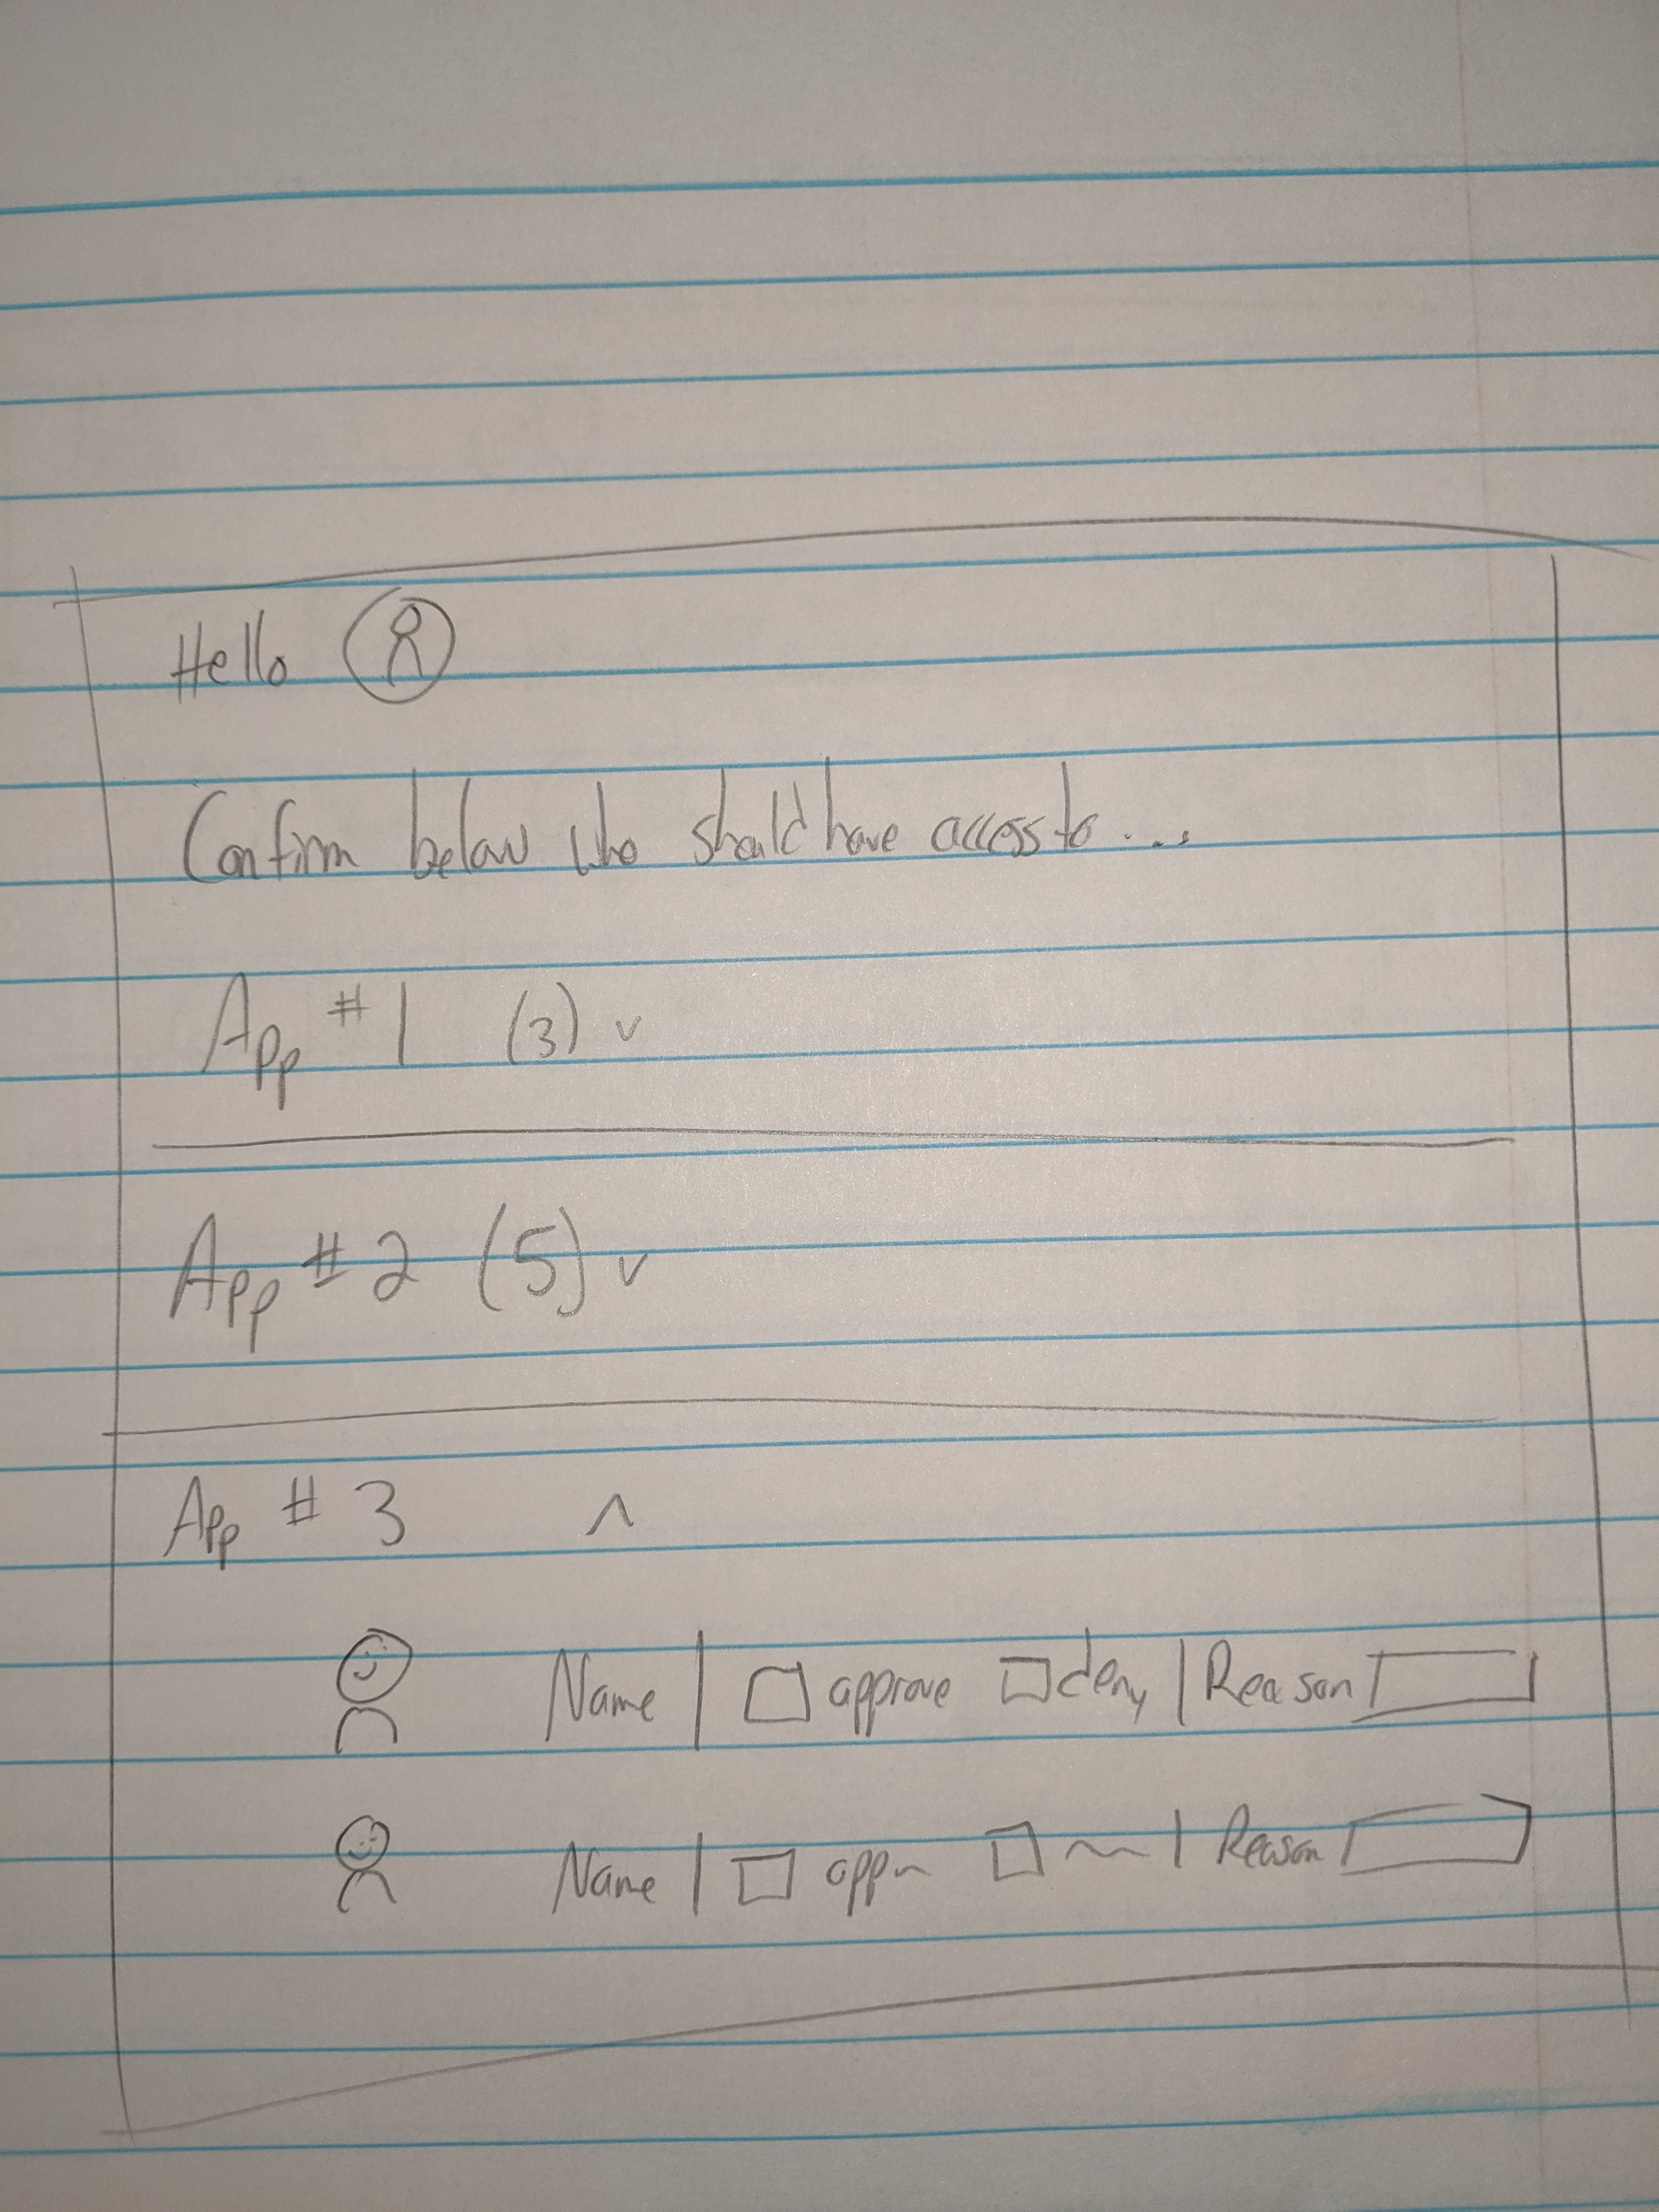 Hello
Confirm below who should have access to...
App #1 (3) v
App #2 (5) v
App #3 ^
Name | approve deny | Reason
Name | app | Reason